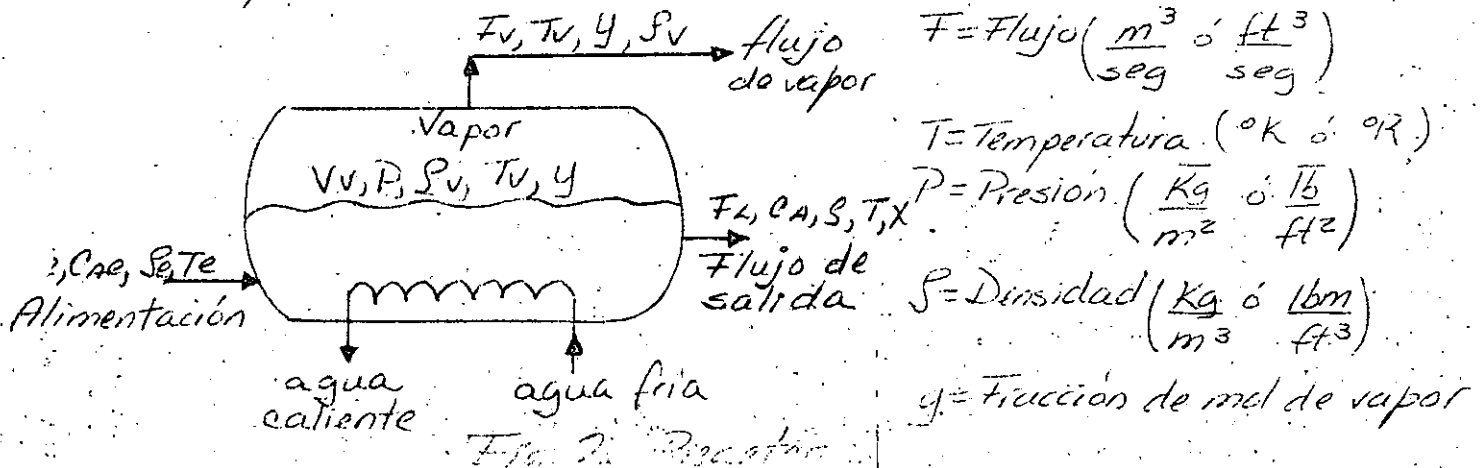 Fv, Tv, y, ρv
flujo
de vapor
Vapor
Vv, P, ρv, Tv, y
, CAe, ρe, Te
Alimentación
FL, CA, ρ, T, X
Flujo de
salida
agua
caliente
agua fria
F=Flujo (m³/seg ó ft³/seg)
T=Temperatura (°K ó °R)
P=Presión (Kg/m² ó lb/ft²)
ρ=Densidad (Kg/m³ ó lbm/ft³)
y=Fracción de mol de vapor